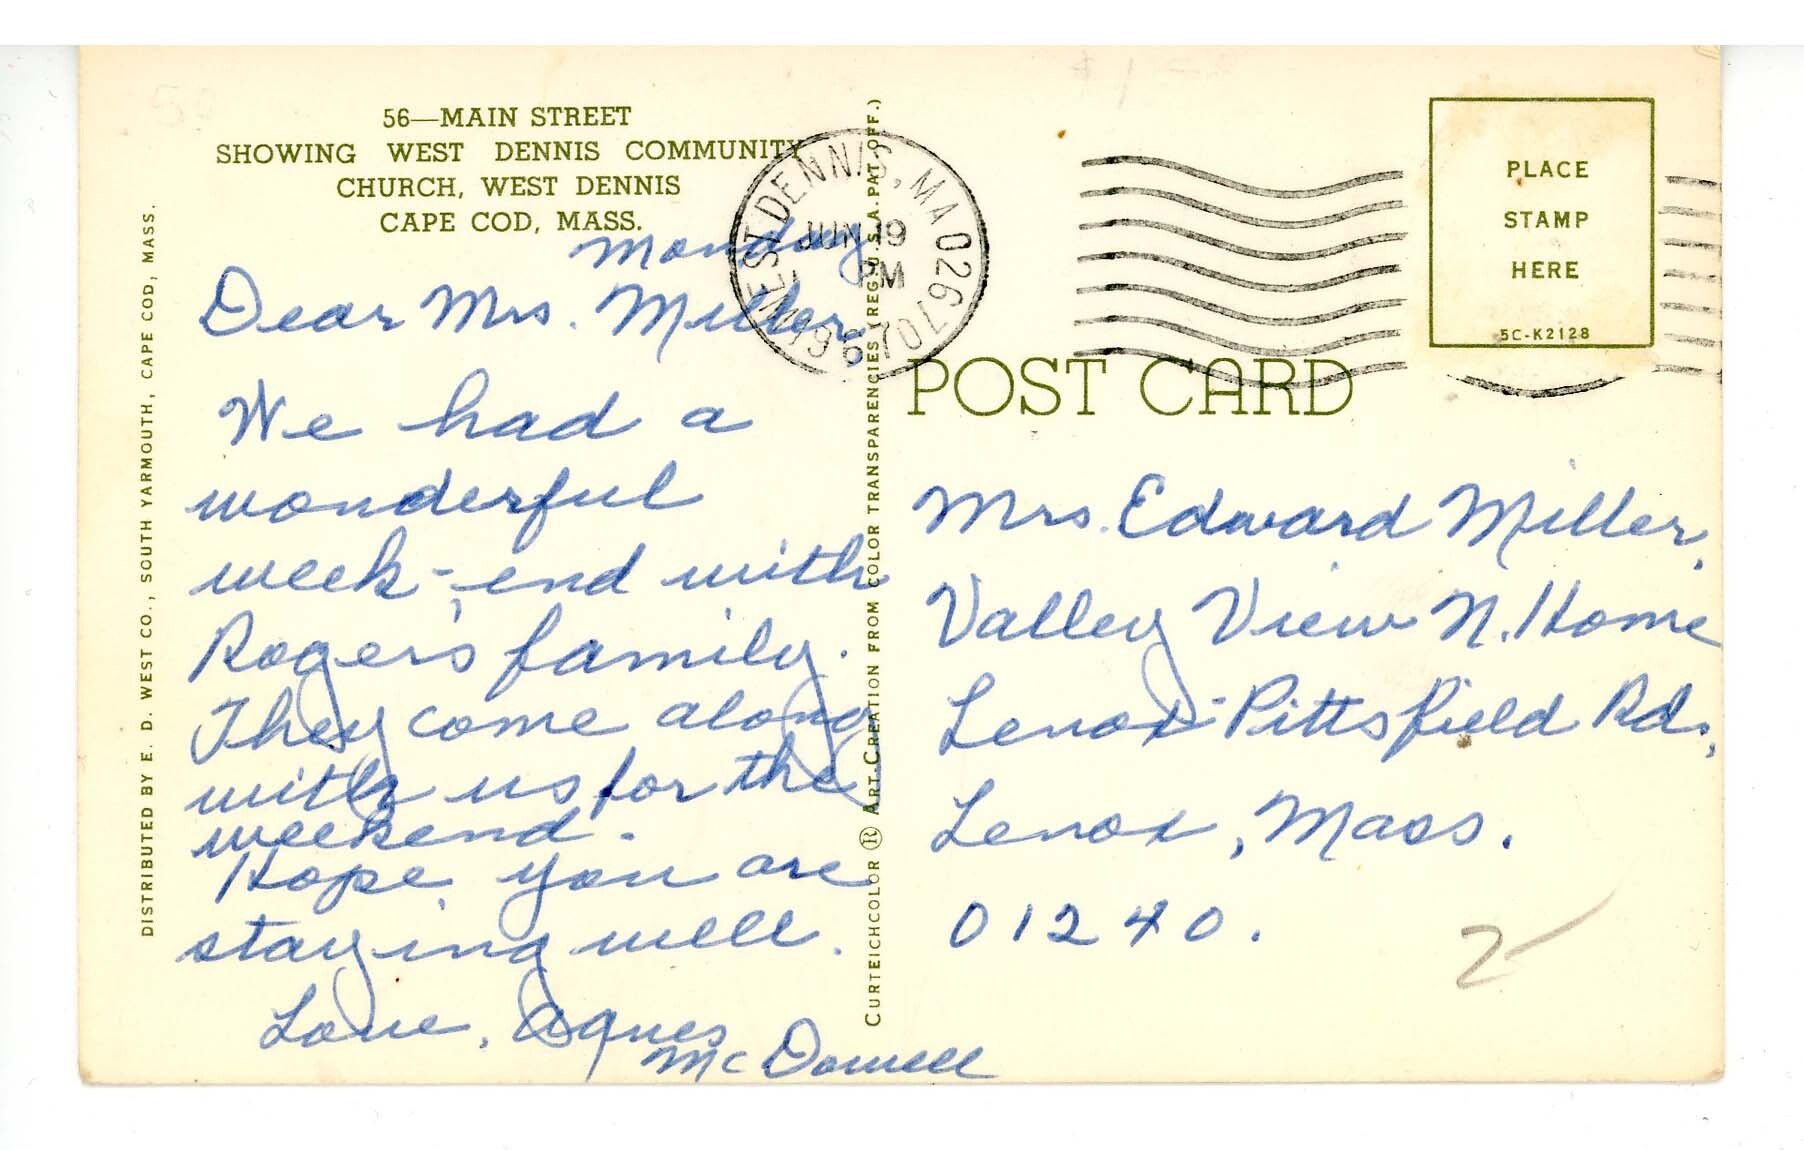 56—MAIN STREET
SHOWING WEST DENNIS COMMUNITY
CHURCH, WEST DENNIS
CAPE COD, MASS.
Monday
Dear Mrs. Miller,
We had a
wonderful
week-end with
Roger's family.
They come along
with us for the
weekend.
Hope you are
staying well.
Love, Agnes
McDowell
DISTRIBUTED BY E. D. WEST CO., SOUTH YARMOUTH, CAPE COD, MASS.
CURTEICHCOLOR ® ART-CREATION FROM COLOR TRANSPARENCIES (REG. U.S.A. PAT. OFF.)
WEST DENNIS, MA 02670
JUN 19
PM
1967
PLACE
STAMP
HERE
5C-K2128
POST CARD
Mrs. Edward Miller,
Valley View N. Home
Lenox-Pittsfield Rd.,
Lenox, Mass.
01240.
2